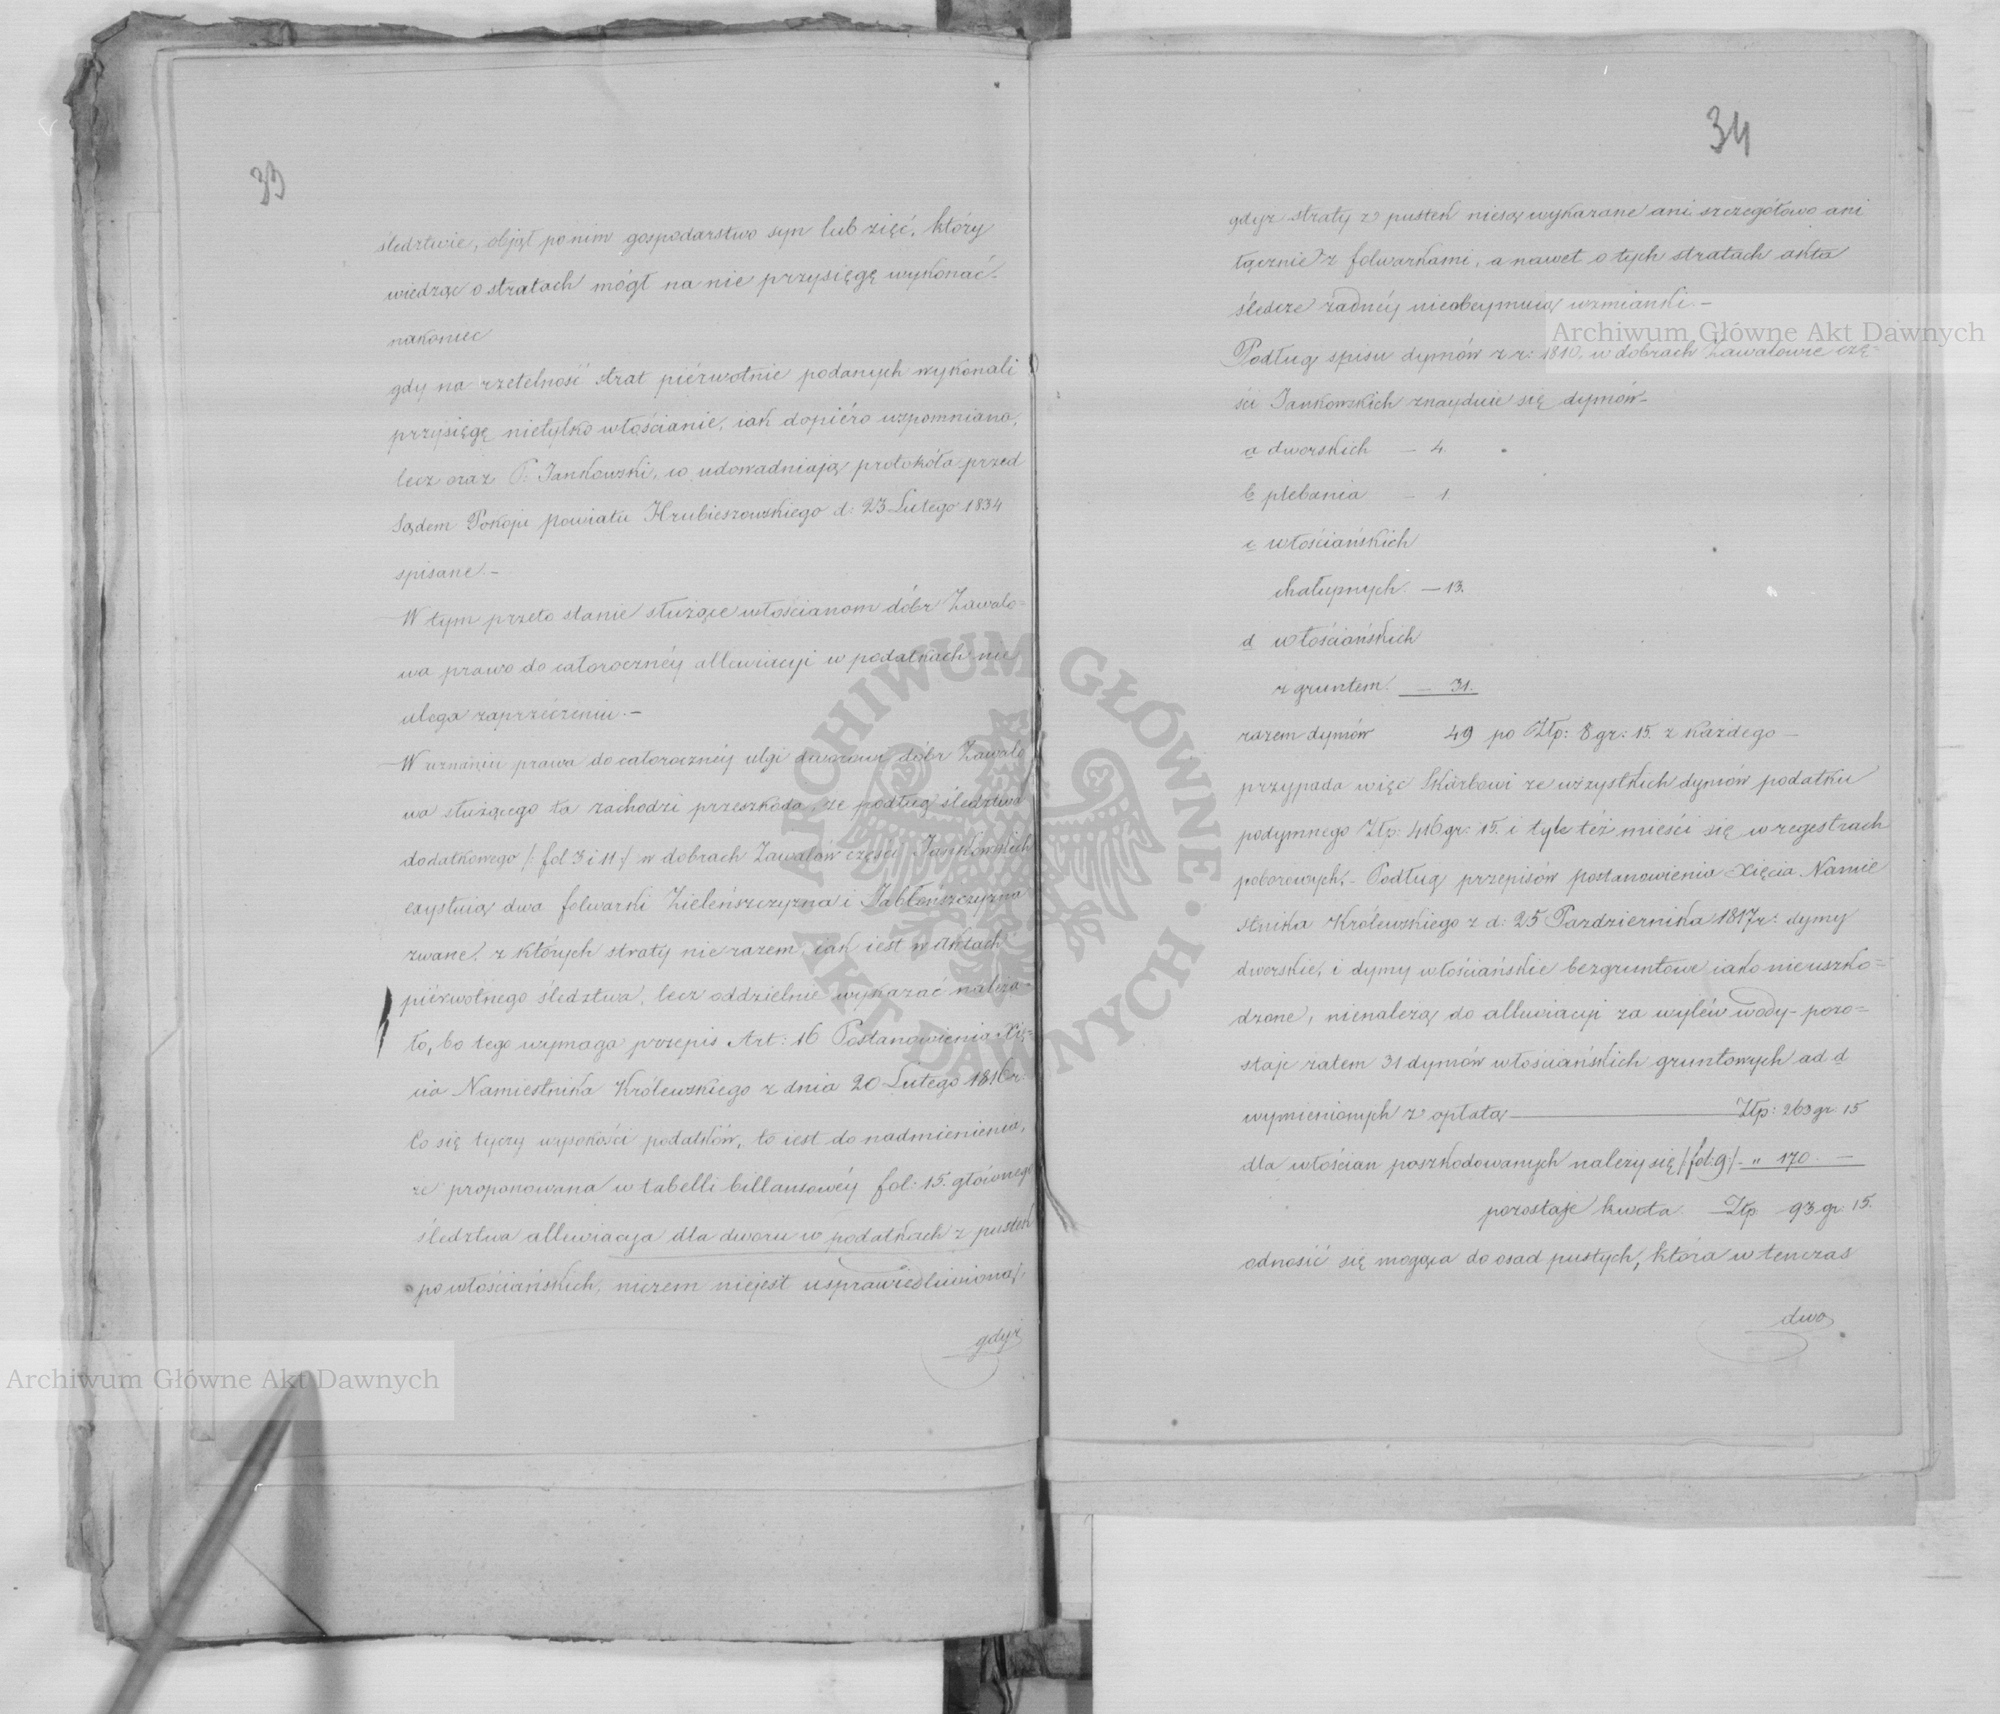 33
śledztwie, objął po nim gospodarstwo syn lub zięć, który
wiedząc o stratach mógł na nie przysięgę wykonać.
nakoniec
gdy na rzetelność strat piérwotnie podanych wykonali
przysięgę nietylko włościanie, iak dopiéro wspomniano,
lecz oraz P. Jankowski, co udowadniają protokóła przed
Sądem Pokoju powiatu Hrubieszowskiego d: 23 Lutego 1834
spisane.–
W tym przeto stanie służące włościanom dóbr Zawało=
wa prawo do całorocznéy alleviacyi w podatkach nie
ulega zaprzeczeniu.–
W uznaniu prawa do całorocznéy ulgi dworowi dóbr Zawało
wa służącego ta zachodzi przeszkoda, że podług śledztwa
dodatkowego /: fol 3 i 11 :/ w dobrach Zawałów części Jankowskich
exystuią dwa folwarki Zieleńszczyzna i Jabłońszczyzna
zwane, z których straty nie razem, iak iest w aktach
piérwotnego śledztwa, lecz oddzielnie wykazać należa=
ło, bo tego wymaga przepis Art: 16 Postanowienia Xię=
cia Namiestnika Królewskiego z dnia 20 Lutego 1816 r.
Co się tyczy wysokości podatków, to iest do nadmienienia,
że proponowana w tabelli billansowéy fol: 15. głównego
śledztwa alleviacya dla dworu w podatkach z pustek
po włościańskich, niczem niejest usprawiedliwioną,
gdyż
34
gdyż straty z pustek niesą wykazane ani szczegółowo ani
łącznie z folwarkami, a nawet o tych stratach akta
śledcze żadnéy nieobeymuią wzmianki.–
Podług spisu dymów z r: 1810. w dobrach Zawałowie czę=
ści Jankowskich znayduie się dymów–
a dworskich – 4.
b plebania – 1.
c włościańskich
chałupnych. – 13.
d włościańskich
z gruntem. – 31.
razem dymów 49 po Złp: 8 gr: 15. z każdego –
przypada więc Skarbowi ze wszystkich dymów podatku
podymnego Złp: 416 gr: 15. i tyle téż mieści się w regestrach
poborowych.– Podług przepisów postanowienia Xięcia Namie
stnika Królewskiego z d: 25 Pazdziernika 1817 r: dymy
dworskie, i dymy włościańskie bezgruntowe iako nieuszko=
dzone, nienależą do alleviacyi za wyléw wody – pozo=
staje zatem 31 dymów włościańskich gruntowych ad d
wymienionych z opłatą Złp: 263 gr: 15
dla włościan poszkodowanych należy się /: fol: 9 /. „ 170. –
pozostaje kwota. Złp. 93 gr. 15.
odnosić się mogąca do osad pustych, która w tenczas
dwo
Archiwum Główne Akt Dawnych
Archiwum Główne Akt Dawnych
ARCHIWUM GŁÓWNE · AKT DAWNYCH ·